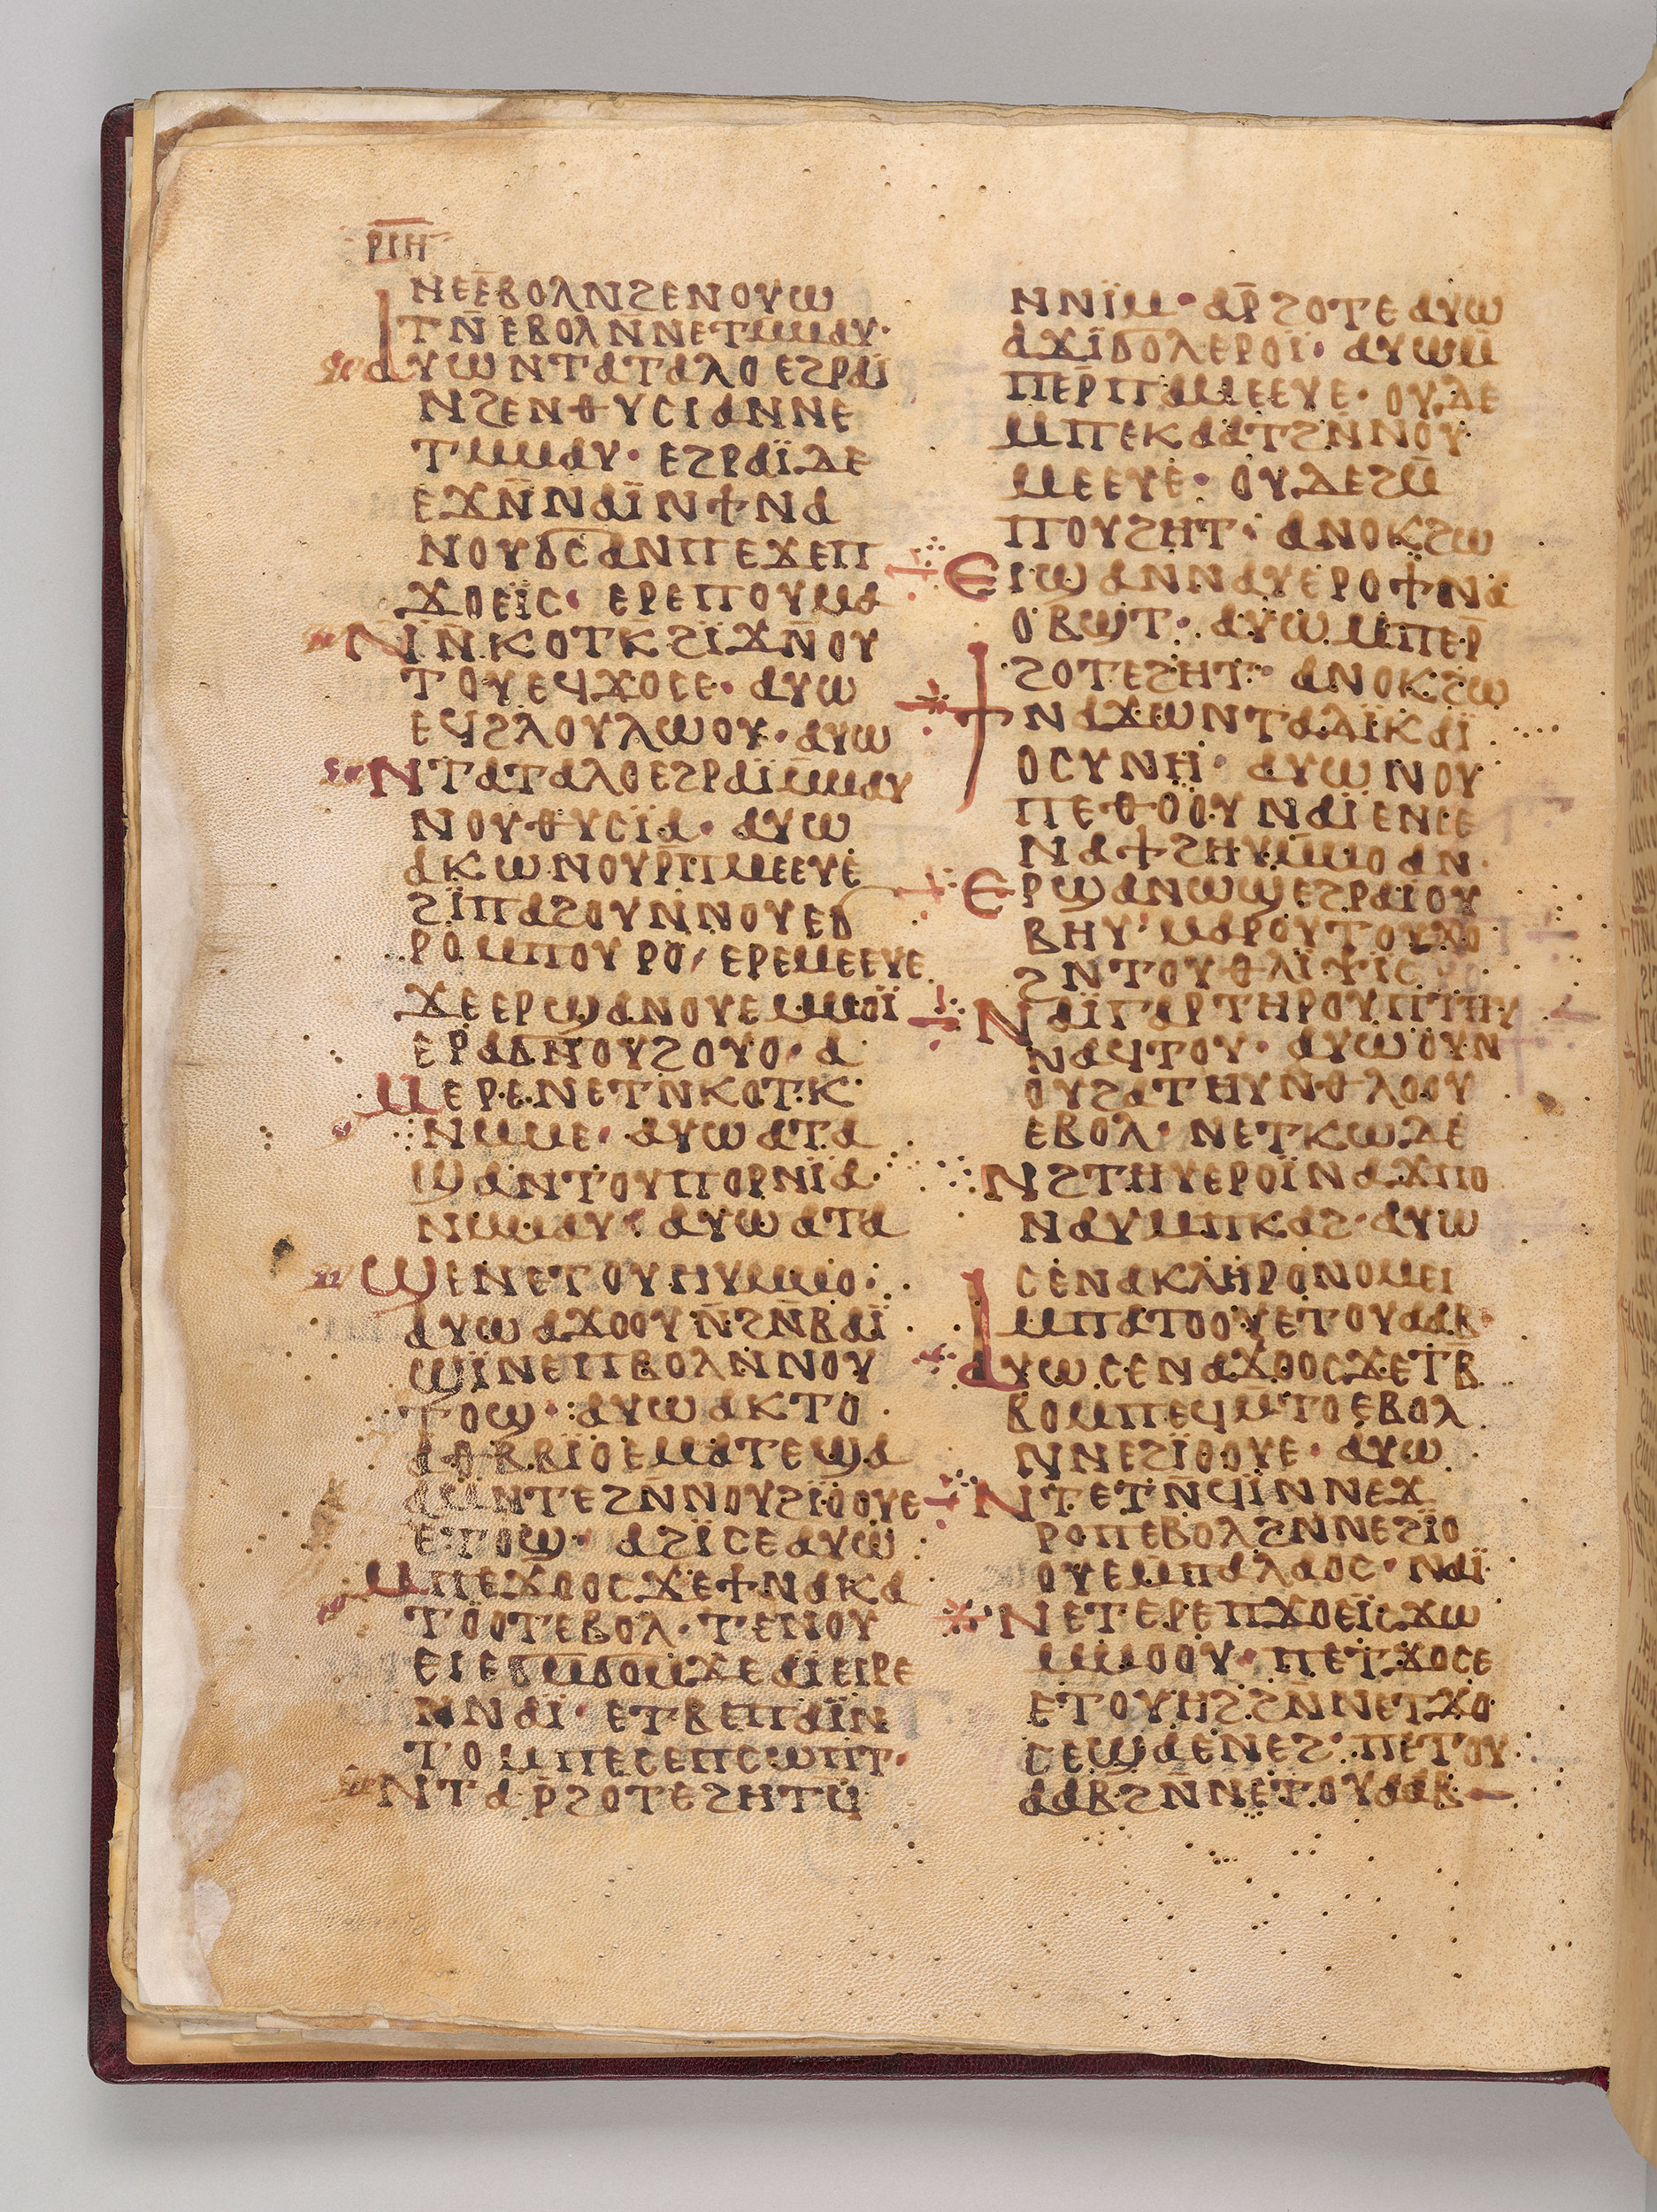 ⲣⲓⲏ
ⲛⲉⲉⲃⲟⲗⲛϩⲉⲛⲟⲩⲱ
ⲧⲛ̄ⲉⲃⲟⲗⲛ̄ⲛⲉⲧⲙ̄ⲙⲁⲩ·
ⲁⲩⲱⲛⲧⲁⲧⲁⲗⲟⲉϩⲣⲁⲓ
ⲛϩⲉⲛⲑⲩⲥⲓⲁⲛⲛⲉ
ⲧⲙⲙⲁⲩ· ⲉϩⲣⲁⲓ̈ⲇⲉ
ⲉϫⲛ̄ⲛⲁⲓ̈ⲛϯⲛⲁ
ⲛⲟⲩϭⲥⲁⲛⲡⲉϫⲉⲡ
ϫⲟⲉⲓ̈ⲥ· ⲉⲣⲉⲡⲟⲩⲙⲁ
ⲛ̄ⲛ̄ⲕⲟⲧⲕ̄ϩⲓ̈ϫⲛ̄ⲟⲩ
ⲧⲟⲩⲉϥϫⲟⲥⲉ· ⲁⲩⲱ
ⲉϥϩⲗⲟⲩⲗⲱⲟⲩ· ⲁⲩⲱ
ⲛⲧⲁⲧⲁⲗⲟⲉϩⲣⲁⲓ̈ⲙ̄ⲙⲁⲩ
ⲛⲟⲩⲑⲩⲥⲓ̈ⲁ· ⲁⲩⲱ
ⲁⲕⲱⲛⲟⲩⲣ̄ⲡⲙⲉⲉⲩⲉ
ϩⲓ̈ⲡⲁϩⲟⲩⲛ̄ⲛⲟⲩⲉϭ
ⲣⲟⲙⲡⲟⲩⲣⲟ/ ⲉⲣⲉⲙⲉⲉⲩⲉ
ϫⲉⲉⲣϣⲁⲛⲟⲩⲉⲙⲙⲟⲓ̈
ⲉⲣⲁϭⲛ̄ⲟⲩϩⲟⲩⲟ· ⲁ
ⲙⲉⲣⲉⲛⲉⲧⲛⲕⲟⲧⲕ
ⲛⲙⲙⲉ· ⲁⲩⲱⲁⲧⲁ
ϣⲁⲛⲧⲟⲩⲡⲟⲣⲛⲓ̈ⲁ
ⲛⲙⲙⲁⲩ· ⲁⲩⲱⲁⲧⲁ
ϣⲉⲛⲉⲧⲟⲩⲏⲩⲙⲙⲟ·
ⲁⲩⲱⲁϫⲟⲟⲩⲛ̄ϩⲛ̄ⲃⲁⲓ̈
ϣⲓ̈ⲛⲉⲡⲃⲟⲗⲛ̄ⲛⲟⲩ
ⲧⲟϣ· ⲁⲩⲱⲁⲕⲧⲟ
ⲁⲑⲃⲃⲓ̈ⲟⲉⲙⲁⲧⲉϣⲁ
ⲁⲙⲛⲧⲉϩⲛ̄ⲛⲟⲩϩⲓ̈ⲟⲟⲩⲉ
ⲉⲧⲟϣ· ⲁϩⲓ̈ⲥⲉⲁⲩⲱ
ⲙⲡⲉϫⲟⲟⲥϫⲉϯⲛⲁⲕⲁ
ⲧⲟⲟⲧⲉⲃⲟⲗ· ⲧⲉⲛⲟⲩ
ⲉⲓⲉϭⲙ̄ϭⲟⲙϫⲉⲁⲓ̈ⲉⲓⲣⲉ
ⲛⲛⲁⲓ̈· ⲉⲧⲃⲉⲡⲁⲓ̈ⲛ
ⲧⲟⲙⲡⲉⲥⲉⲡⲥⲱⲡⲧ·
ⲛⲧⲁⲣ̄ϩⲟⲧⲉϩⲏⲧϥ
ⲛⲛⲓ̈ⲙ· ⲁⲣ̄ϩⲟⲧⲉⲁⲩⲱ
ⲁϫⲓ̈ϭⲟⲗⲉⲣⲟⲓ̈· ⲁⲩⲱⲙ̄
ⲡⲉⲣ̄ⲡⲁⲙⲉⲉⲩⲉ· ⲟⲩⲇⲉ
ⲙⲡⲉⲕⲁⲁⲧϩⲛ̄ⲛⲟⲩ
ⲙⲉⲉⲩⲉ· ⲟⲩⲇⲉϩⲙ̄
ⲡⲟⲩϩⲏⲧ· ⲁⲛⲟⲕϩⲱ
ⲉⲓϣⲁⲛⲛⲁⲩⲉⲣⲟϯⲛⲁ
ⲟⲃϣⲧ· ⲁⲩⲱⲙⲡⲉⲣ̄
ϩⲟⲧⲉϩⲏⲧ· ⲁⲛⲟⲕϩⲱ
ϯⲛⲁϫⲱⲛⲧⲁⲇⲓ̈ⲕⲁⲓ̈
ⲟⲥⲩⲛⲏ· ⲁⲩⲱⲛⲟⲩ
ⲡⲉⲑⲟⲟⲩⲛⲁⲓ̈ⲉⲛⲥⲉ
ⲛⲁϯϩⲏⲩⲙ̄ⲙⲟⲁⲛ·
ⲉⲣϣⲁⲛⲱϣⲉϩⲣⲁⲓ̈ⲟⲩ
ⲃⲏⲩ' ⲙⲁⲣⲟⲩⲧⲟⲩϫⲟ
ϩⲛⲧⲟⲩⲑⲗⲓ̈ⲯⲓⲥ
ⲛⲁⲓ̈ⲅⲁⲣⲧⲏⲣⲟⲩⲡⲧⲏⲩ
ⲛⲁϥⲧⲟⲩ· ⲁⲩⲱⲟⲩⲛ
ⲟⲩϩⲁⲧⲏⲩⲛⲑⲗⲟⲟⲩ
ⲉⲃⲟⲗ· ⲛⲉⲧⲕⲱⲇⲉ
ⲛϩⲧⲏⲩⲉⲣⲟⲓ̈ⲛⲁϫⲡⲟ
ⲛⲁⲩⲙⲡⲕⲁϩ· ⲁⲩⲱ
ⲥⲉⲛⲁⲕⲗⲏⲣⲟⲛⲟⲙⲉⲓ
ⲙⲡⲁⲧⲟⲟⲩⲉⲧⲟⲩⲁⲁⲃ·
ⲁⲩⲱⲥⲉⲛⲁϫⲟⲟⲥϫⲉⲧⲃ
ⲃⲟⲙⲡⲉϥⲙ̄ⲧⲟⲉⲃⲟⲗ
ⲛⲛⲉϩⲓ̈ⲟⲟⲩⲉ· ⲁⲩⲱ
ⲛⲧⲉⲧⲛ̄ϥⲓ̈ⲛⲛⲉϫ
ⲣⲟⲡⲉⲃⲟⲗϩⲛⲛⲉϩⲓ̈ⲟ
ⲟⲩⲉⲙ̄ⲡⲁⲗⲁⲟⲥ· ⲛⲁⲓ̈
ⲛⲉⲧⲉⲣⲉⲡϫⲟⲉⲓ̈ⲥϫⲱ
ⲙⲙⲟⲟⲩ· ⲡⲉⲧϫⲟⲥⲉ
ⲉⲧⲟⲩⲏϩϩⲛ̄ⲛⲉⲧϫⲟ
ⲥⲉϣⲁⲉⲛⲉϩ· ⲡⲉⲧⲟⲩ
ⲁⲁⲃϩⲛ̄ⲛⲉⲧⲟⲩⲁⲁⲃ